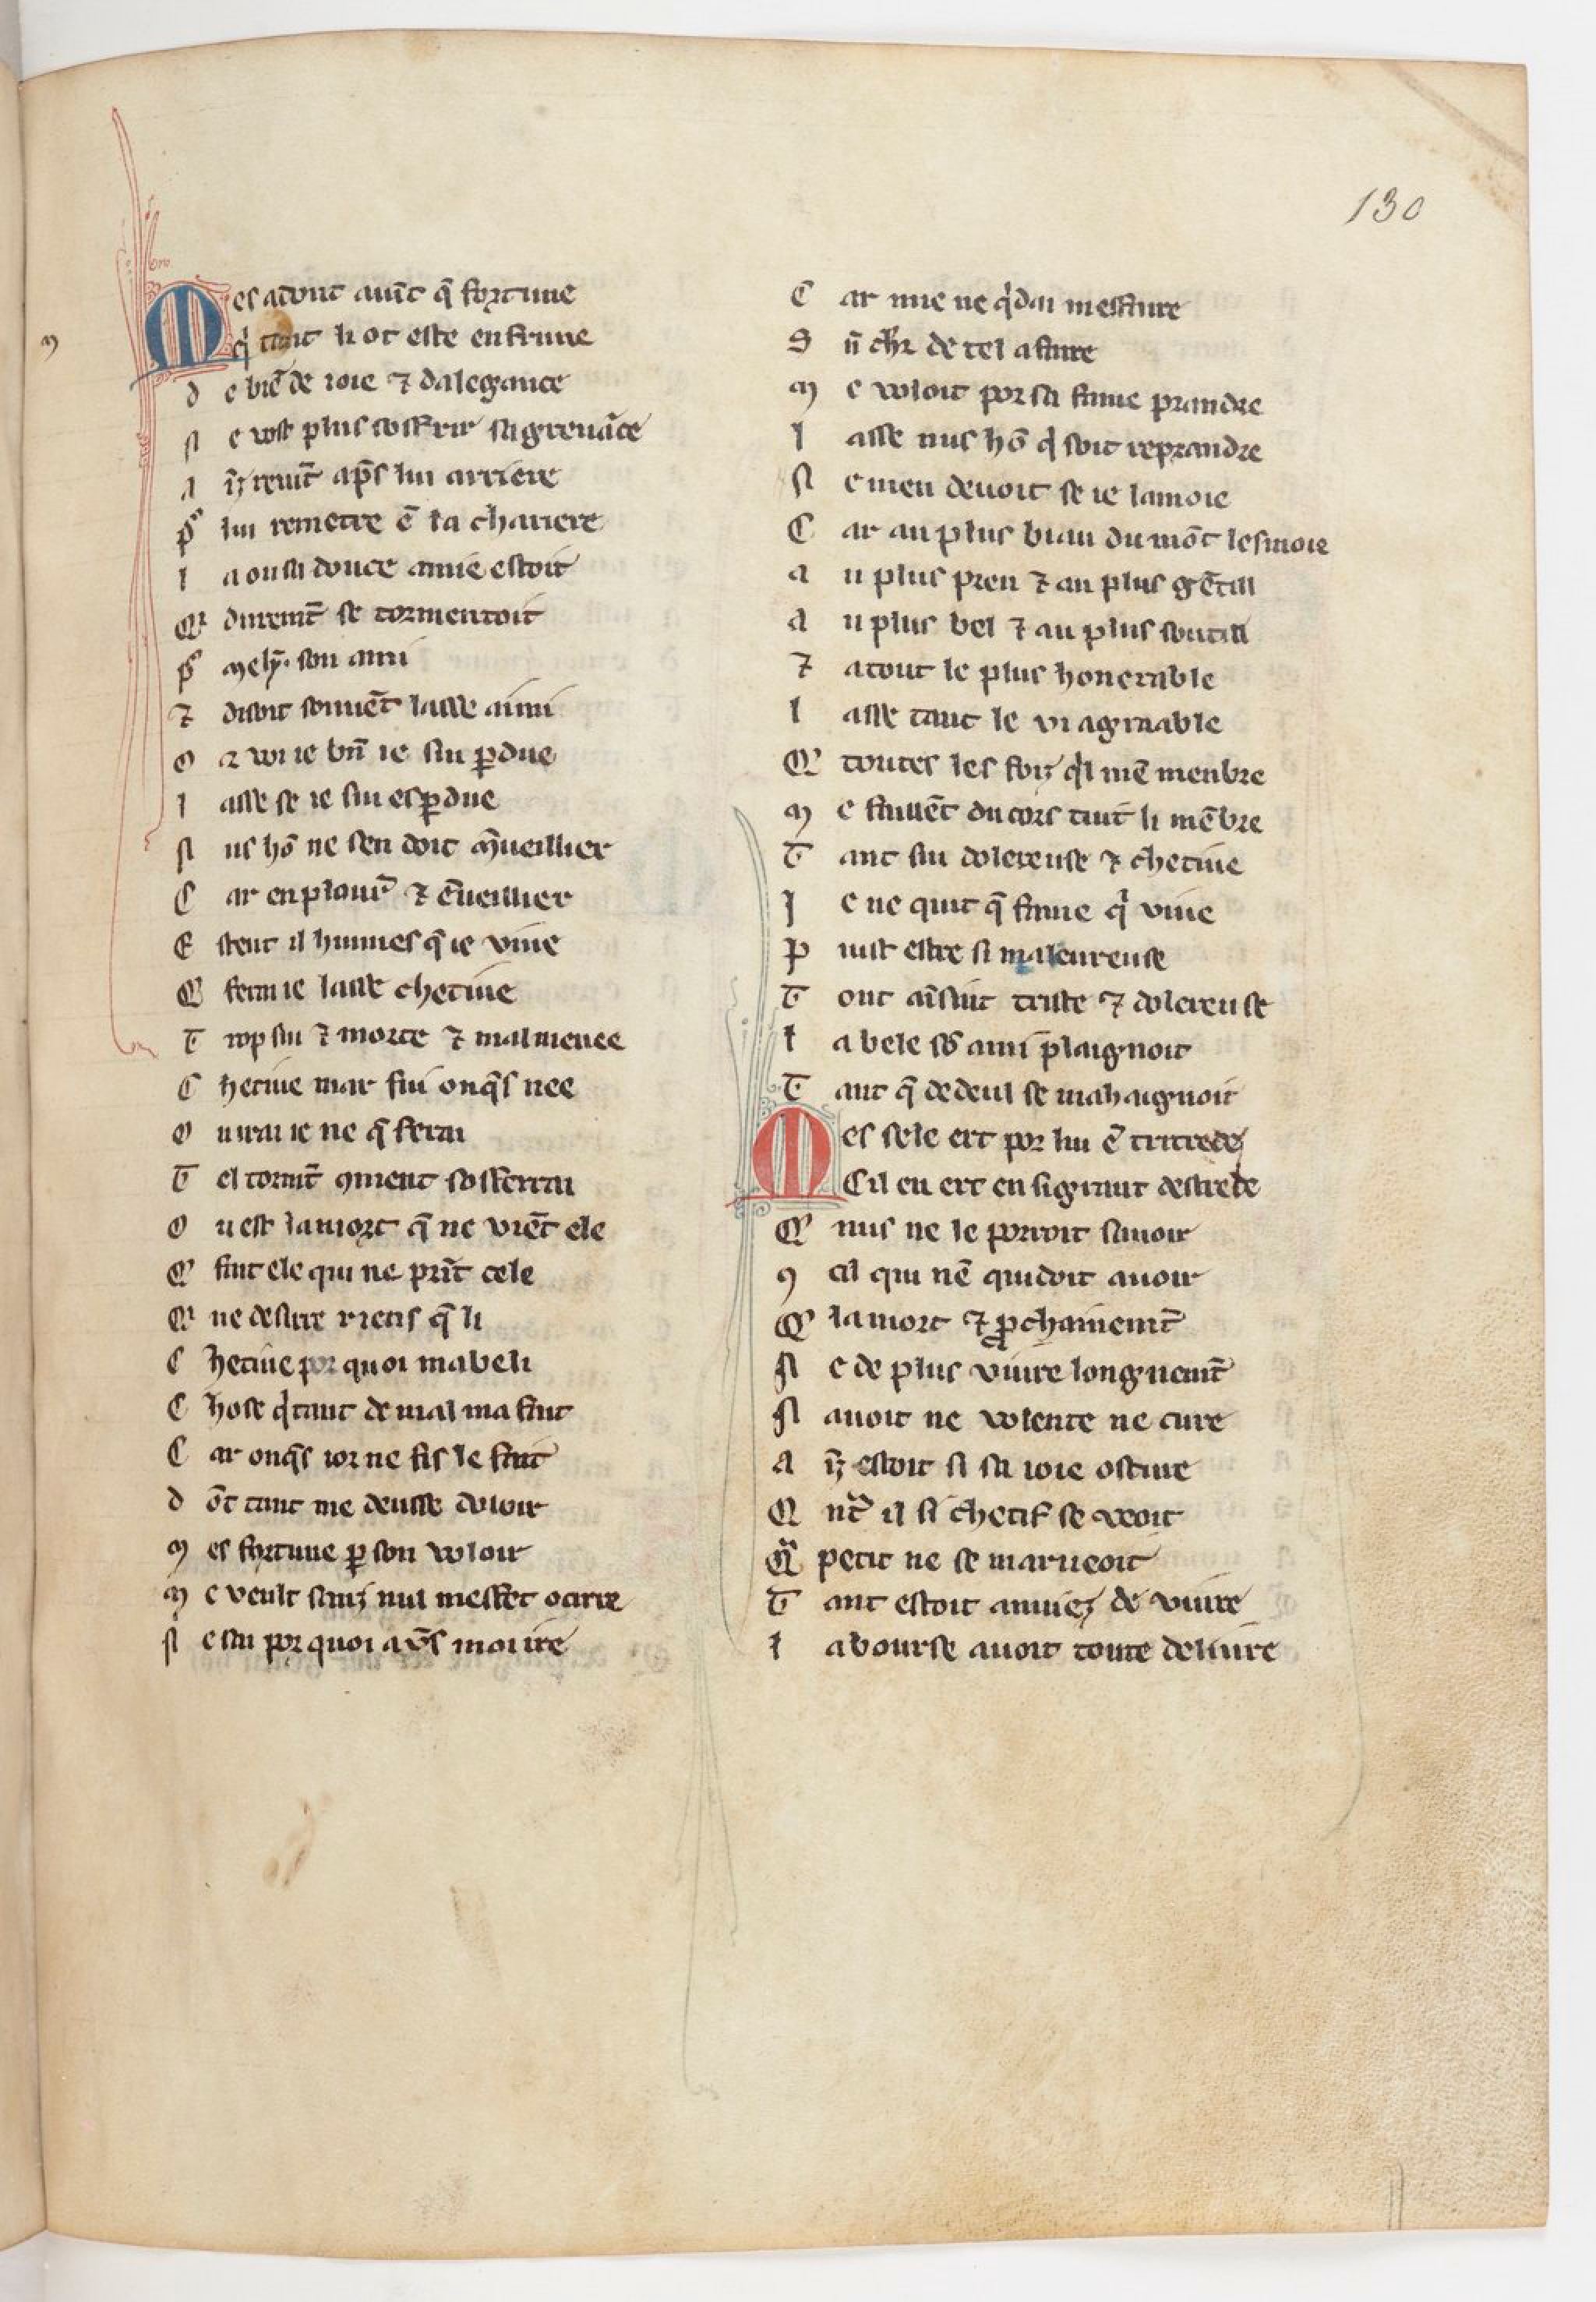 130
Mes atout auīt q̄ fortune
Qi tant li ot este enfrune
d e biē de ioie ⁊ dalegance
N e vost plus soffrir sa greuāce
A īz reuīt ap̄s lui arriere
P̄ lui remetre ē la chariere
L a ou sa douce amie estoit
Q' duremt̄ se tormentoit
P̄ mely. son ami
⁊ disoit souuēt lasse aimi
O r voi ie bn̄ ie sui ꝑdue
L asse se ie sui esꝑdue
N us hō ne sen doit m̄ueillier
C ar en plour ⁊ ē ueillier
E stent il huimes q̄ ie viue
Q' ferai ie lasse chetiue
T rop sui ⁊ morte ⁊ mal menee
C hetiue mar fui onq̄s nee
O u irai ie ne q̄ ferai
T el tormt̄ ꝯment sofferrai
O u est la mort q̄ ne viēt ele
Q' fait ele qui ne prīt cele
Q' ne desirre riens q̄ li
C hetiue por quoi mabeli
C hose qi tant de mal ma fait
C ar onq̄s ior ne fis le fait
d ōt tant me deusse doloir
M es fortune ꝑ son voloir
M e veult sanz nul meffet ocirre
N e sai por quoi a vs̄ mo ire
m
C ar mie ne qidai meffaire
S ū chr̄ de tel afaire
M e voloit por sa fame prandre
L asse nus hō qi soit reprandre
N e men deuoit se ie lamoie
C ar au plus biau du mōt lesmoie
A u plus preu ⁊ au plus gētill
A u plus bel ⁊ au plus soutill
⁊ atout le plus honerable
L asse tant le vi agraable
Q' toutes les foiz qil mē menbre
M e faillēt du cors tuit li mēbre
T ant sui dolereuse ⁊ chetiue
J e ne quit q̄ fame qi viue
P uist estre si maleureuse
T out aīsint triste ⁊ dolereuse
L a bele sō ami plaignoit
T ant q̄ de deul se mahaignoit
Mes sele ert por lui ē tritrede
Cil en ert en si grant destrede
Q' nus ne le porroit sauoir
ꝯ cil qui nē quidoit auoir
Q' la mort ⁊ ꝓchainemt̄
N e de plus viure longuemt̄
N auoit ne volente ne cure
A īz estoit si sa ioie oscure
Q nt̄ il si chetif se veoit
Qa petit ne se marueoit
T ant estoit anuiez de viure
L a bourse auoit toute deliure